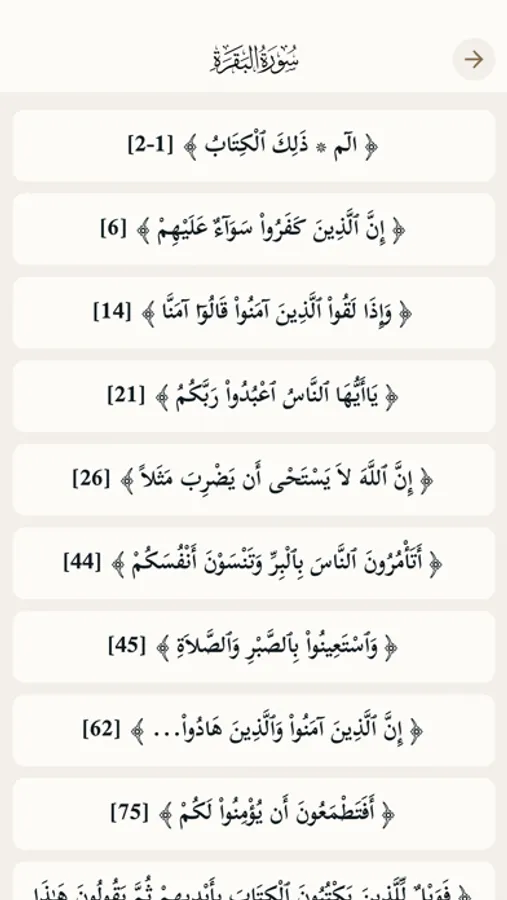 سُورَةُ البَقَرَةِ
﴿ الٓم ۞ ذَلِكَ ٱلْكِتَابُ ﴾ [1-2]
﴿ إِنَّ ٱلَّذِينَ كَفَرُواْ سَوَآءٌ عَلَيْهِمْ ﴾ [6]
﴿ وَإِذَا لَقُواْ ٱلَّذِينَ آمَنُواْ قَالُوۤا آمَنَّا ﴾ [14]
﴿ يَاأَيُّهَا ٱلنَّاسُ ٱعْبُدُواْ رَبَّكُمُ ﴾ [21]
﴿ إِنَّ ٱللَّهَ لاَ يَسْتَحْى أَن يَضْرِبَ مَثَلاً ﴾ [26]
﴿ أَتَأْمُرُونَ ٱلنَّاسَ بِٱلْبِرِّ وَتَنْسَوْنَ أَنْفُسَكُمْ ﴾ [44]
﴿ وَٱسْتَعِينُواْ بِٱلصَّبْرِ وَٱلصَّلاَةِ ﴾ [45]
﴿ إِنَّ ٱلَّذِينَ آمَنُواْ وَٱلَّذِينَ هَادُواْ... ﴾ [62]
﴿ أَفَتَطْمَعُونَ أَن يُؤْمِنُواْ لَكُمْ ﴾ [75]
﴿ فَوَيْلٌ لِّلَّذِينَ يَكْتُبُونَ ٱلْكِتَابَ بِأَيْدِيهِمْ ثُمَّ يَقُولُونَ هَـٰذَا